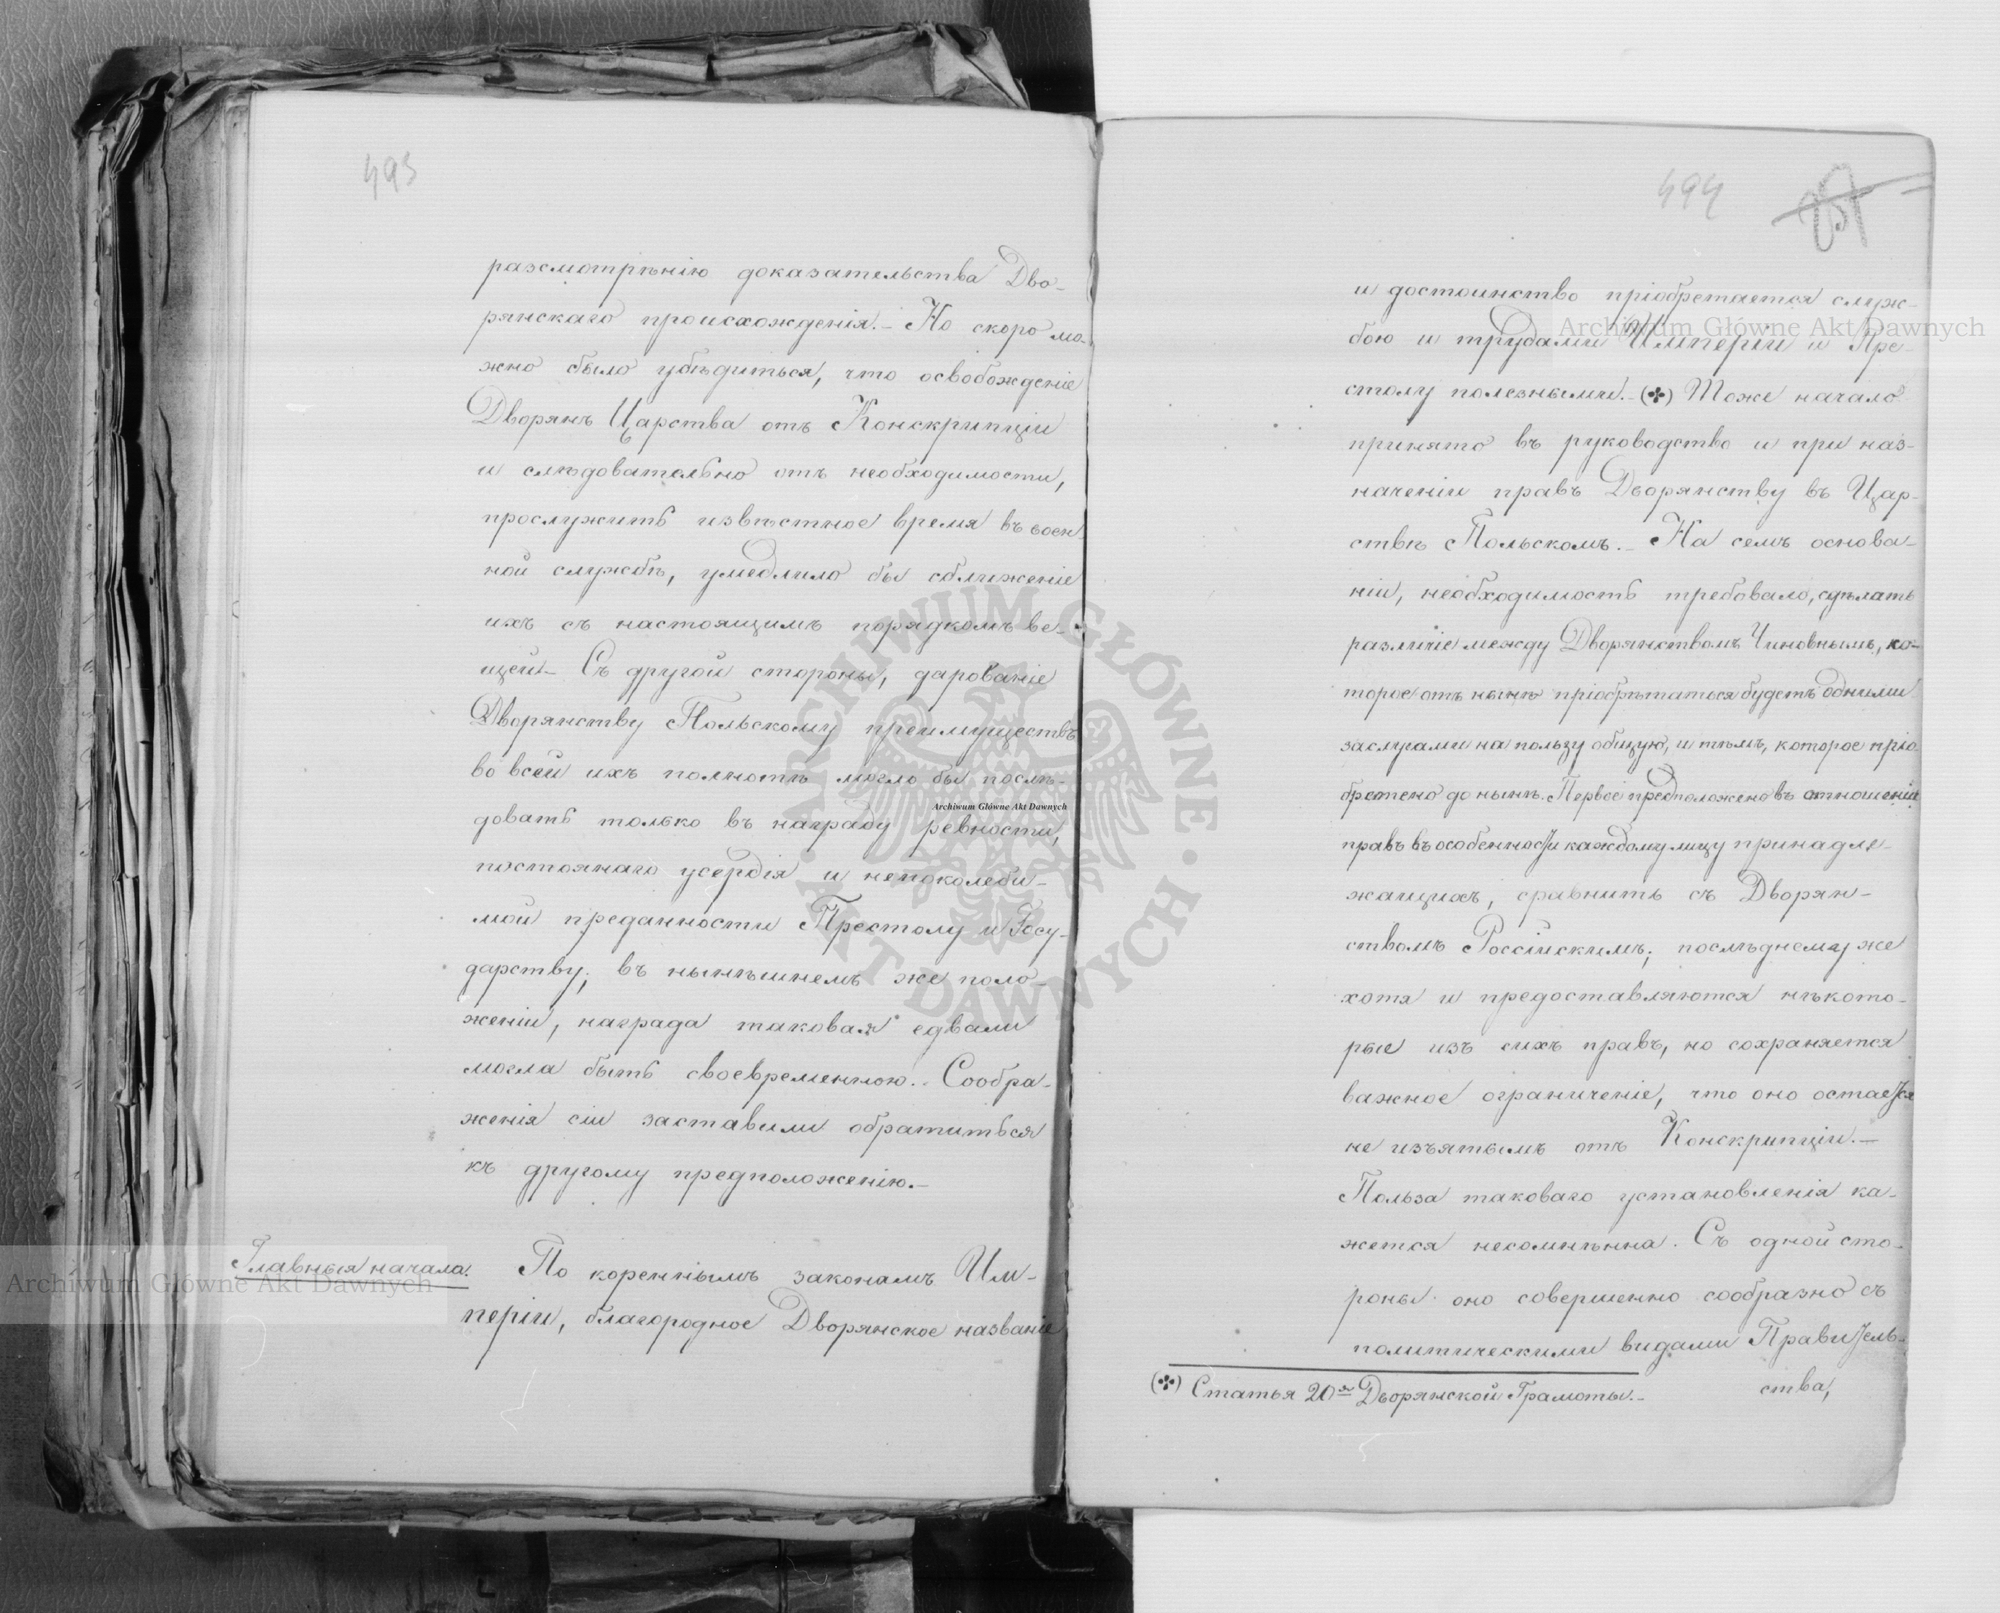 493
разсмотрѣнію доказательства Дво-
рянскаго происхожденія.- Но скоро мо-
жно было убѣдиться, что освобожденіе
Дворянъ Царства отъ Конскрипціи
и слѣдовательно отъ необходимости,
прослужить извѣстное время въ воен
ной службѣ, умедлило бы сближеніе
ихъ съ настоящимъ порядкомъ ве-
щей.- Съ другой стороны, дарованіе
Дворянству Польскому преимуществъ
во всей ихъ полнотѣ могло бы послѣ-
довать только въ награду ревности,
постояннаго усердія и непоколеби-
мой преданности Престолу и Госу-
дарству; въ нынѣшнемъ же поло-
женіи, награда таковая едвали
могла быть своевременною.. Сообра-
женія сіи заставили обратиться
къ другому предположенію.-
Главныя начала. По кореннымъ законамъ Им-
періи, благородное Дворянское названіе
494
и достоинство пріобретается служ-
бою и трудами Имперіи и Пре-
столу полезными.- (✤) Тоже начало
принято въ руководство и при наз-
наченіи правъ Дворянству въ Цар-
ствѣ Польскомъ.- На семъ основа-
ніи, необходимость требовало, сдѣлать
различіе между Дворянствомъ Чиновнымъ, ко-
торое отъ нынѣ пріобрѣтаться будетъ одними
заслугами на пользу общую, и тѣмъ, которое пріо
бретено до нынѣ. Первое предположено въ отношеніи
правъ въ особенности каждому лицу принадле-
жащихъ, сравнить съ Дворян-
ствомъ Россійскимъ; послѣднему же
хотя и предоставляются нѣкото-
рые изъ сихъ правъ, но сохраняется
важное ограниченіе, что оно остается
не изъятымъ отъ Конскрипціи.-
Польза таковаго установленія ка-
жется несомнѣнна. Съ одной сто-
роны оно совершенно сообразно съ
политическими видами Правитель-
ства,
(✤) Статья 20я Дворянской Грамоты.-
Archiwum Główne Akt Dawnych
Archiwum Główne Akt Dawnych
Archiwum Główne Akt Dawnych
ARCHIWUM GŁÓWNE · AKT DAWNYCH ·